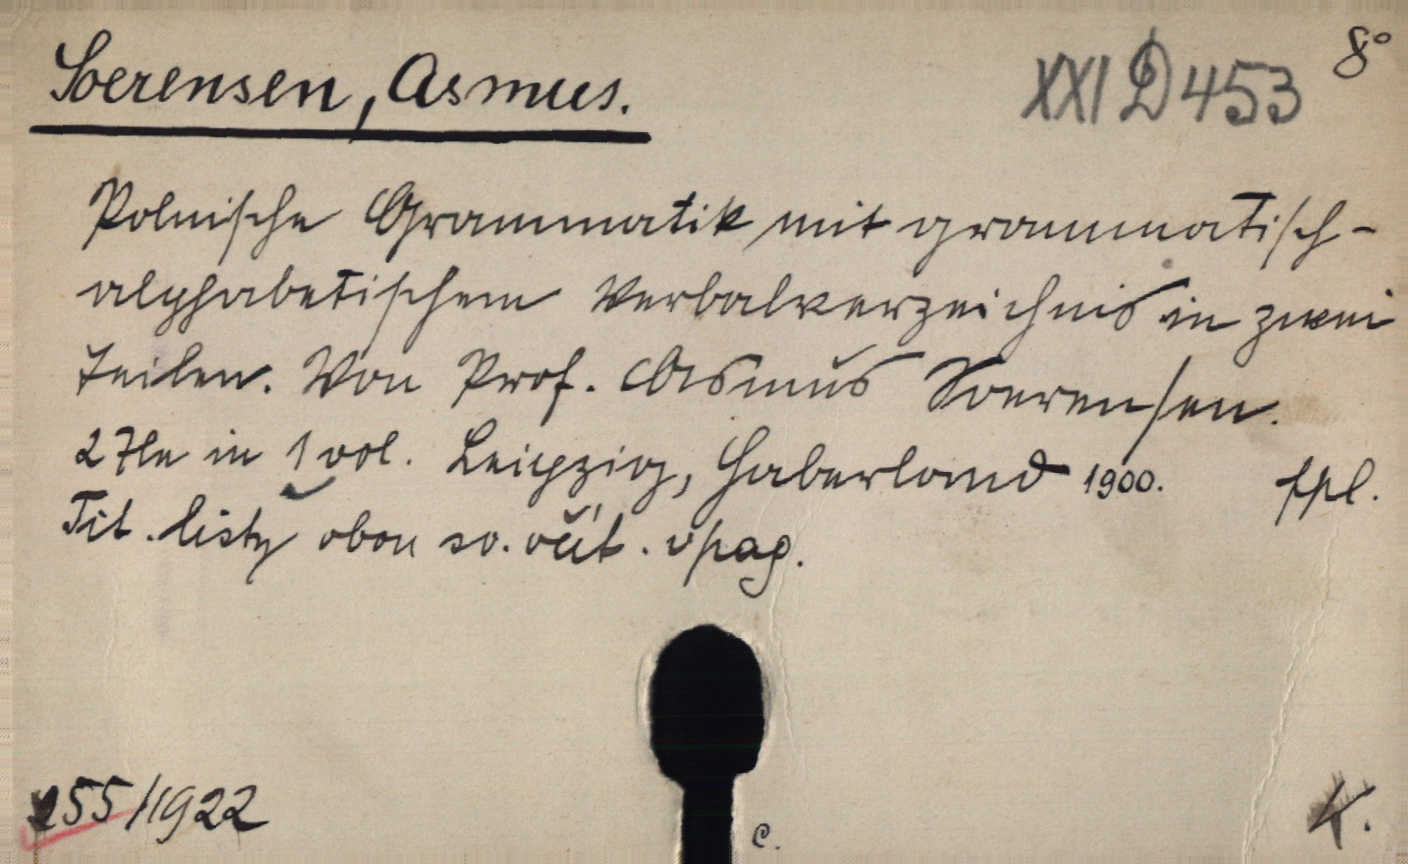 Soerensen, Asmus.
XXI D 453
8°
Polnische Grammatik mit grammatisch-
alphabetischem Verbalverzeichnis in zwei
Teilen. Von Prof. Asmus Soerensen.
2 Tle in 1 vol. Leipzig, Haberland 1900. ppl.
Tit. listy obou sv. včít. v pag.
255/1922
C.
K.